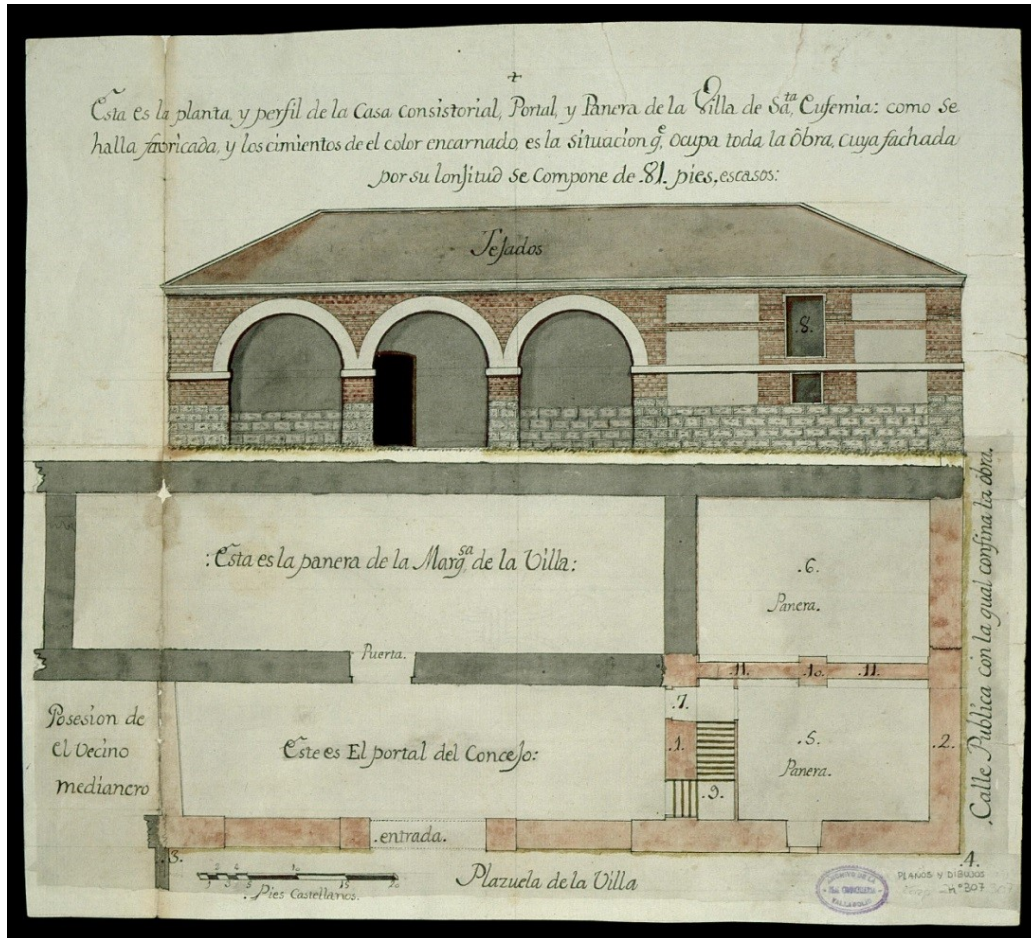 +
Esta es la planta y perfil de la Casa consistorial, Portal, y Panera de la Villa de Sa,ta Eufemia: como se
halla fabricada, y los cimientos de el color encarnado, es la situacion q,e ocupa toda la ôbra, cuya fachada
por su lonJitud se compone de .81. pies, escasos:
TeJados
.8.
:Esta es la panera de la Marq,sa de la Villa:
.6.
Panera.
Puerta.
.11.
.10.
.11.
.7.
Posesion de
el Vecino
medianero
Este es El portal del ConceJo:
.1.
.5.
Panera.
.2.
.9.
.entrada.
.Calle Publica con la qual confina la ôbra.
.3.
.4.
5
10
15
20
.Pies Castellanos.
Plazuela de la Villa
PLANOS Y DIBUJOS
Nº 307